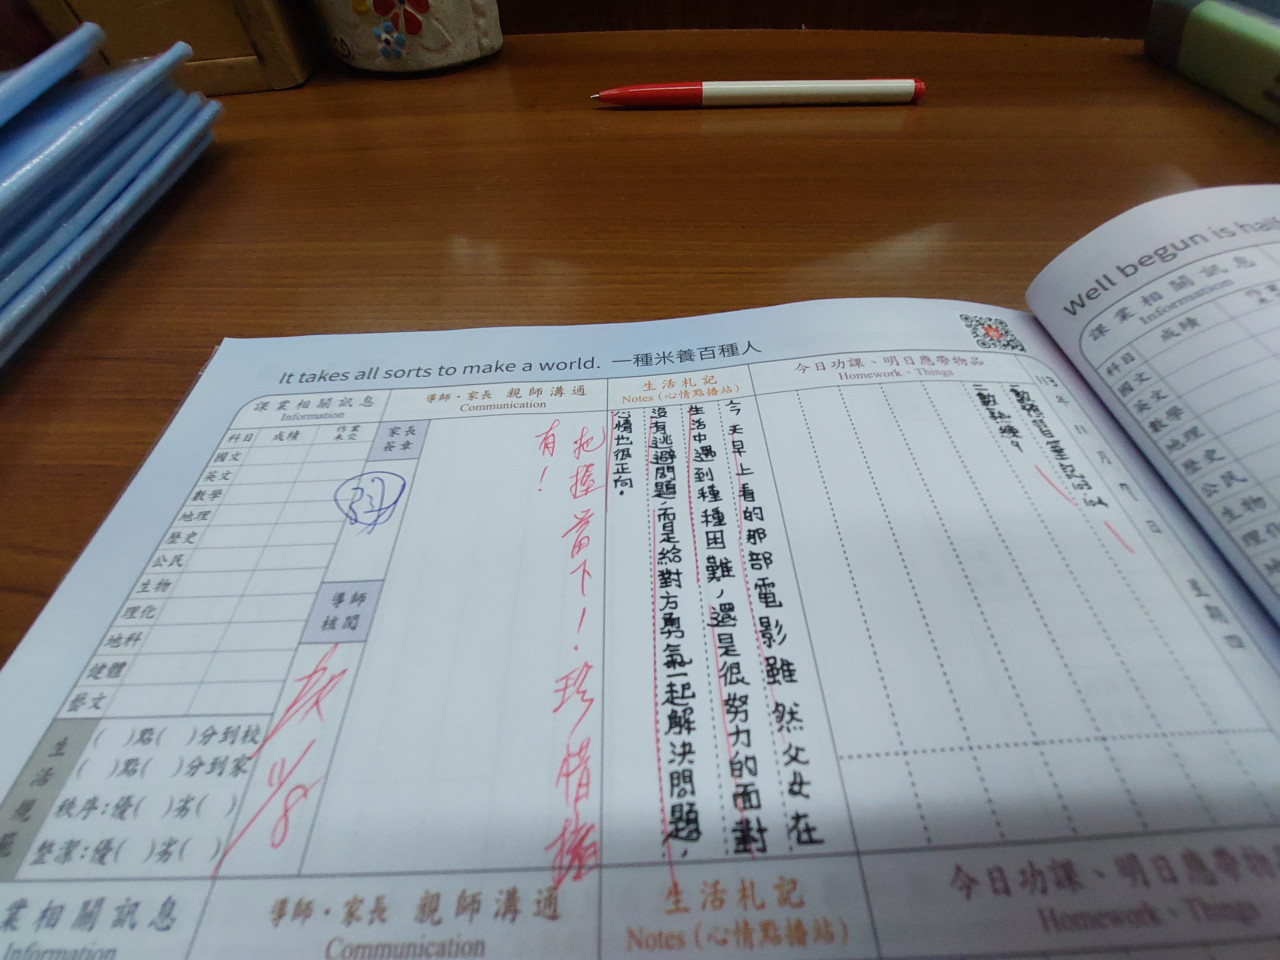 It takes all sorts to make a world. 一種米養百種人
課業相關訊息
Information
導師・家長 親師溝通
Communication
生活札記
Notes (心情點播站)
今日功課、明日應帶物品
Homework、Things
113年11月7日 星期四
今天早上看的那部電影雖然父女在
生活中遇到種種困難，還是很努力的面對
沒有逃避問題，而是給對方勇氣一起解決問題，
心情也很正向。
把握當下！珍惜擁
有！
家長
簽章
導師
核閱
11/8
科目 成績 作業未交
國文
英文
數學
地理
歷史
公民
生物
理化
地科
健體
藝文
生活規範
( )點( )分到校
( )點( )分到家
秩序:優( )劣( )
整潔:優( )劣( )
業相關訊息
Information
導師・家長 親師溝通
Communication
生活札記
Notes (心情點播站)
今日功課、明日應帶物
Homework、Things
Well begun is half
課業相關訊息
Information
科目 成績
國文
英文
數學
地理
歷史
公民
生物
理化